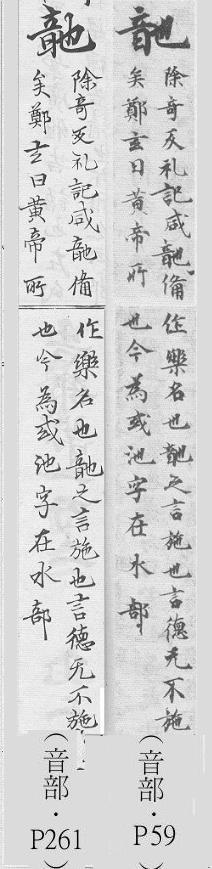 除奇反礼記咸備
矣鄭玄曰黄帝所
作樂名也之言施也言德无不施
也今為或池字在水部
（音部・P59）
除奇反礼記咸備
矣鄭玄曰黄帝所
作樂名也之言施也言德无不施
也今為或池字在水部
（音部・P261）